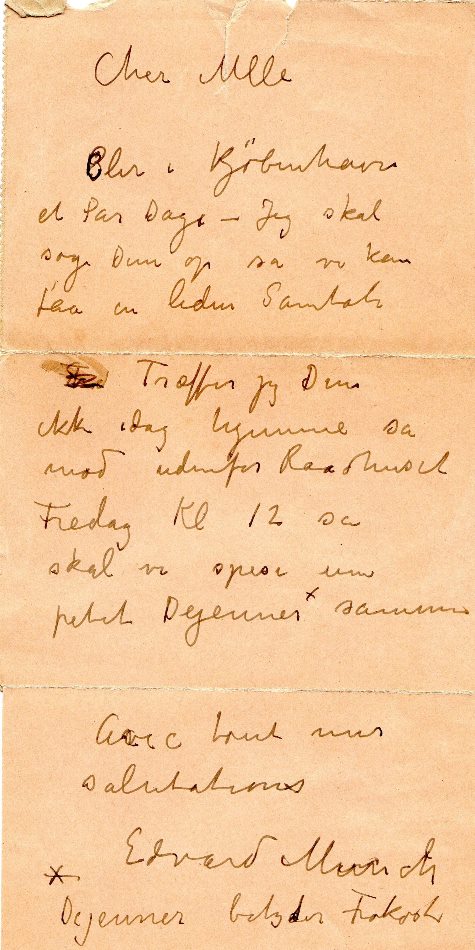 Cher Mlle
Blir i Kjöbenhavn
et Par Dage – Jeg skal
søge Dem op sa vi kan
faa en liden Samtale
Træffer jeg Dem
ikke idag hjemme sa
mød udenfor Raadhuset
Fredag Kl 12 sa
skal vi spise une
petit Dejeuner* sammen
Avec tout mes
salutations
Edvard Munch
*
Dejeuner betyder Frokost